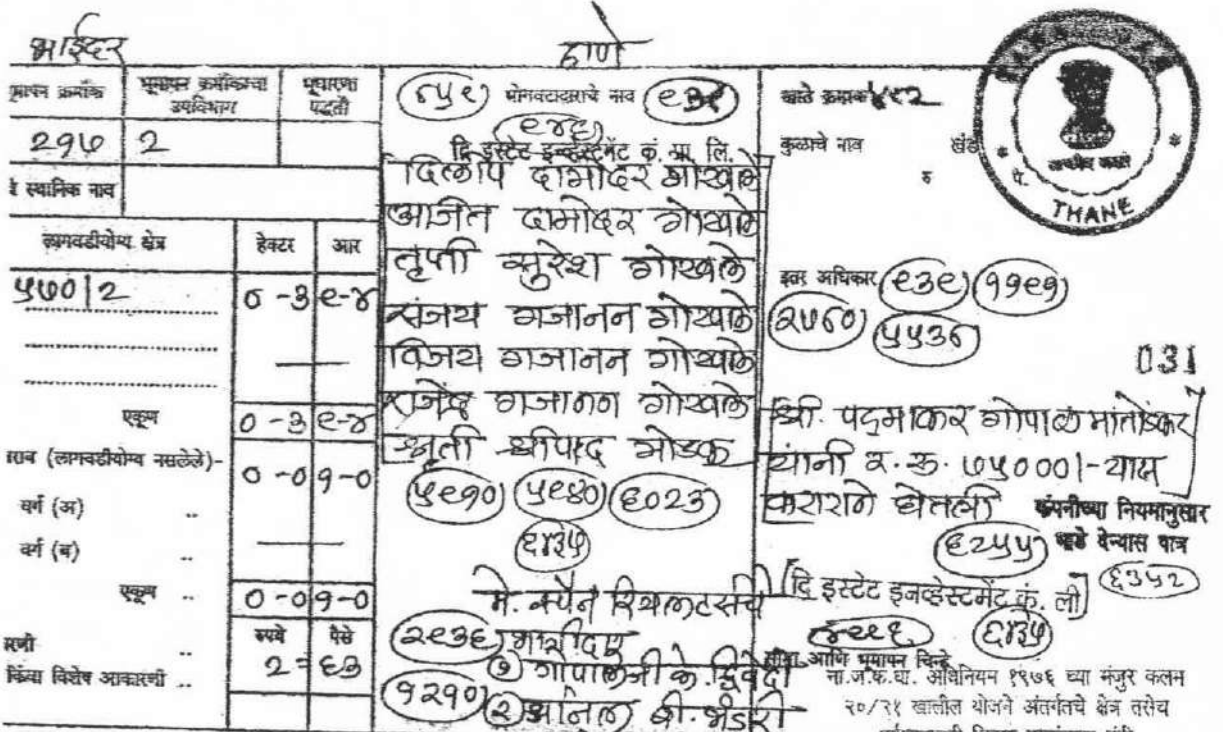 भाईंदर
ठाणे
भूमापन क्रमांक
भूमापन क्रमांकाचा उपविभाग
भूधारणा पद्धती
२१७
२
स्थानिक नाव
लागवडीयोग्य क्षेत्र
हेक्टर
आर
५७०/२
०-३९-४
एकूण
०-३९-४
(लागवडीयोग्य नसलेले)-
०-०१-०
वर्ग (अ) ..
वर्ग (ब) ..
एकूण ..
०-०१-०
रुपये
पैसे
किंवा विशेष आकारणी ..
२=६३
भोगवटादाराचे नाव
दि इस्टेट इन्व्हेस्टमेंट कं. प्रा. लि.
दिलीप दामोदर गोखले
अजित दामोदर गोखले
तृप्ती सुरेश गोखले
संजय गजानन गोखले
विजय गजानन गोखले
राजेंद्र गजानन गोखले
श्रुती श्रीपाद गोडक
५९१० ५९४० ६०२३
६४३५
मे. स्पैन रियलटर्सचे
२९३६ भागीदार
१ गोपालजी के. द्विवेदी
१२१० २ अनिल बी. भंडारी
खाते क्रमांक ४९२
कुळाचे नाव
खंड
रु
THANE
इतर अधिकार ९३९ ११९१
२७६० ५५३६
031
श्री. पद्माकर गोपाळ मांतोंडकर
यांनी र. रु. ७५०००/- यास
कराराने घेतली
कंपनीच्या नियमानुसार
६२५५ भाडे देण्यास पात्र
दि इस्टेट इनव्हेस्टमेंट कं. ली
६३५२
६४३५
सीमा आणि भूमापन चिन्हे
ना.ज.क.धा. अधिनियम १९७६ च्या मंजुर कलम
२०/२१ खालील योजने अंतर्गतचे क्षेत्र तसेच